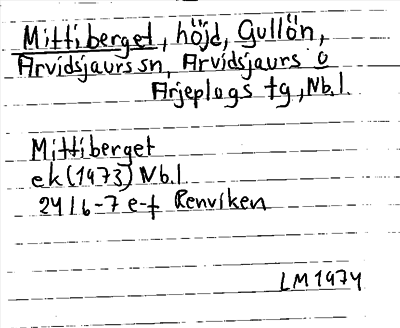 Mittiberget, höjd, Gullön,
Arvidsjaurs sn, Arvidsjaurs o
Arjeplogs tg, Nb.l.
Mittiberget
ek (1973) Nb.l
24I 6-7 e-f Renviken
LM 1974